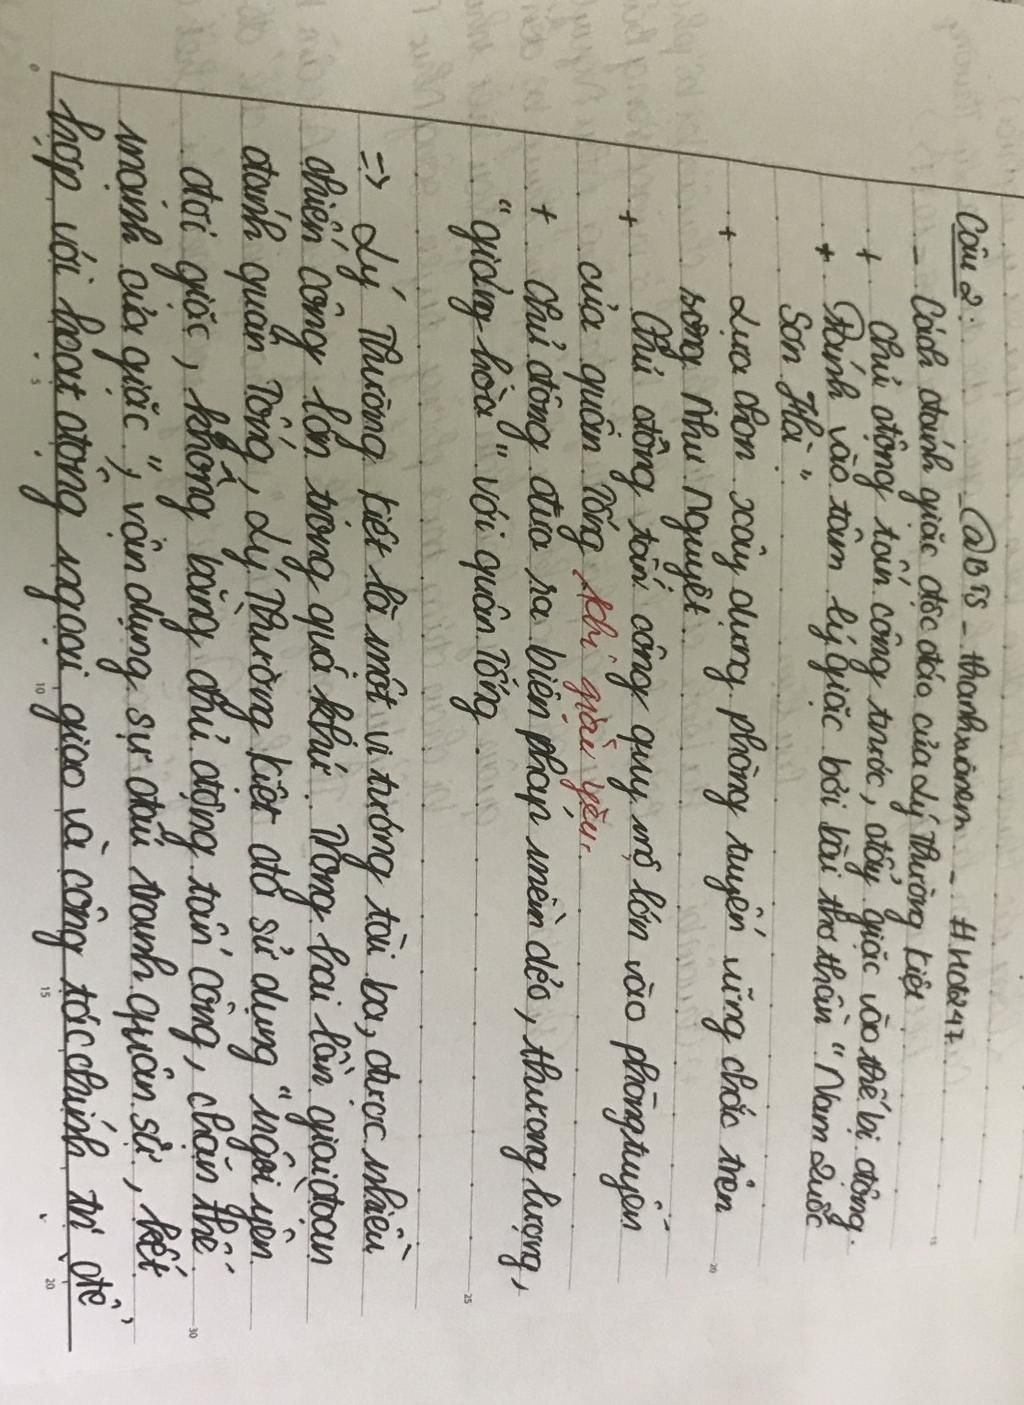 @BTS - thanhxuanem - #Hoc247.
Câu 2:
- Cách đánh giặc độc đáo của Lý Thường Kiệt
+ Chủ động tấn công trước, đẩy giặc vào thế bị động.
+ Đánh vào tâm lý giặc bởi bài thơ thần "Nam Quốc
Sơn Hà".
+ Lựa chọn xây dựng phòng tuyến vững chắc trên
sông Như Nguyệt.
+ Chủ động tấn công quy mô lớn vào phòng tuyến
của quân Tống khi giặc yếu.
+ Chủ động đưa ra biện pháp mềm dẻo, thương lượng,
"giảng hòa" với quân Tống.
=> Lý Thường Kiệt là một vị tướng tài ba, được nhiều
chiến công lớn trong quá khứ. Trong hai lần giai đoạn
đánh quân Tống, Lý Thường Kiệt đã sử dụng "ngồi yên
đợi giặc, không bằng chủ động tấn công, chặn thế
mạnh của giặc", vận dụng sự đấu tranh quân sự, kết
hợp với hoạt động ngoại giao và công tác chính trị để
0
5
10
15
20
15
20
25
30